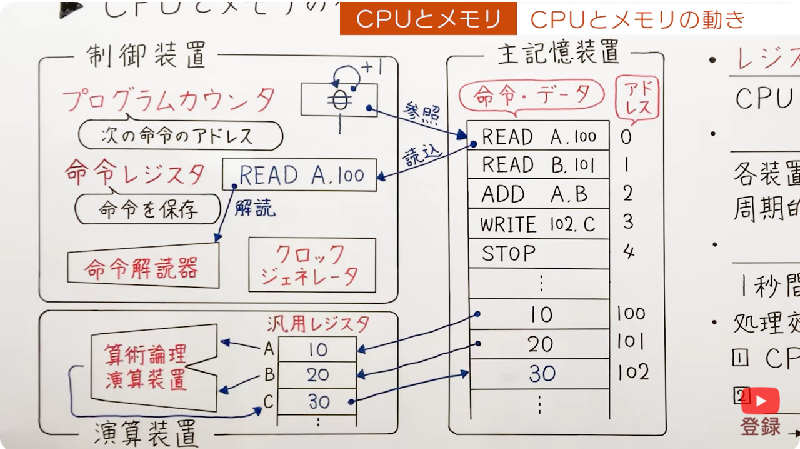 CPUとメモリの
CPUとメモリ
CPUとメモリの動き
制御装置
プログラムカウンタ
次の命令のアドレス
+1
0
1
参照
読込
命令レジスタ
READ A.100
命令を保存
解読
命令解読器
クロック
ジェネレータ
主記憶装置
命令・データ
アドレス
READ A.100 0
READ B.101 1
ADD A.B 2
WRITE 102.C 3
STOP 4
⋮
10 100
20 101
30 102
⋮
汎用レジスタ
算術論理
演算装置
A 10
B 20
C 30
⋮
演算装置
・レジス
CPU
・
各装置
周期的
・
1秒間
・処理効
1 CP
2
登録